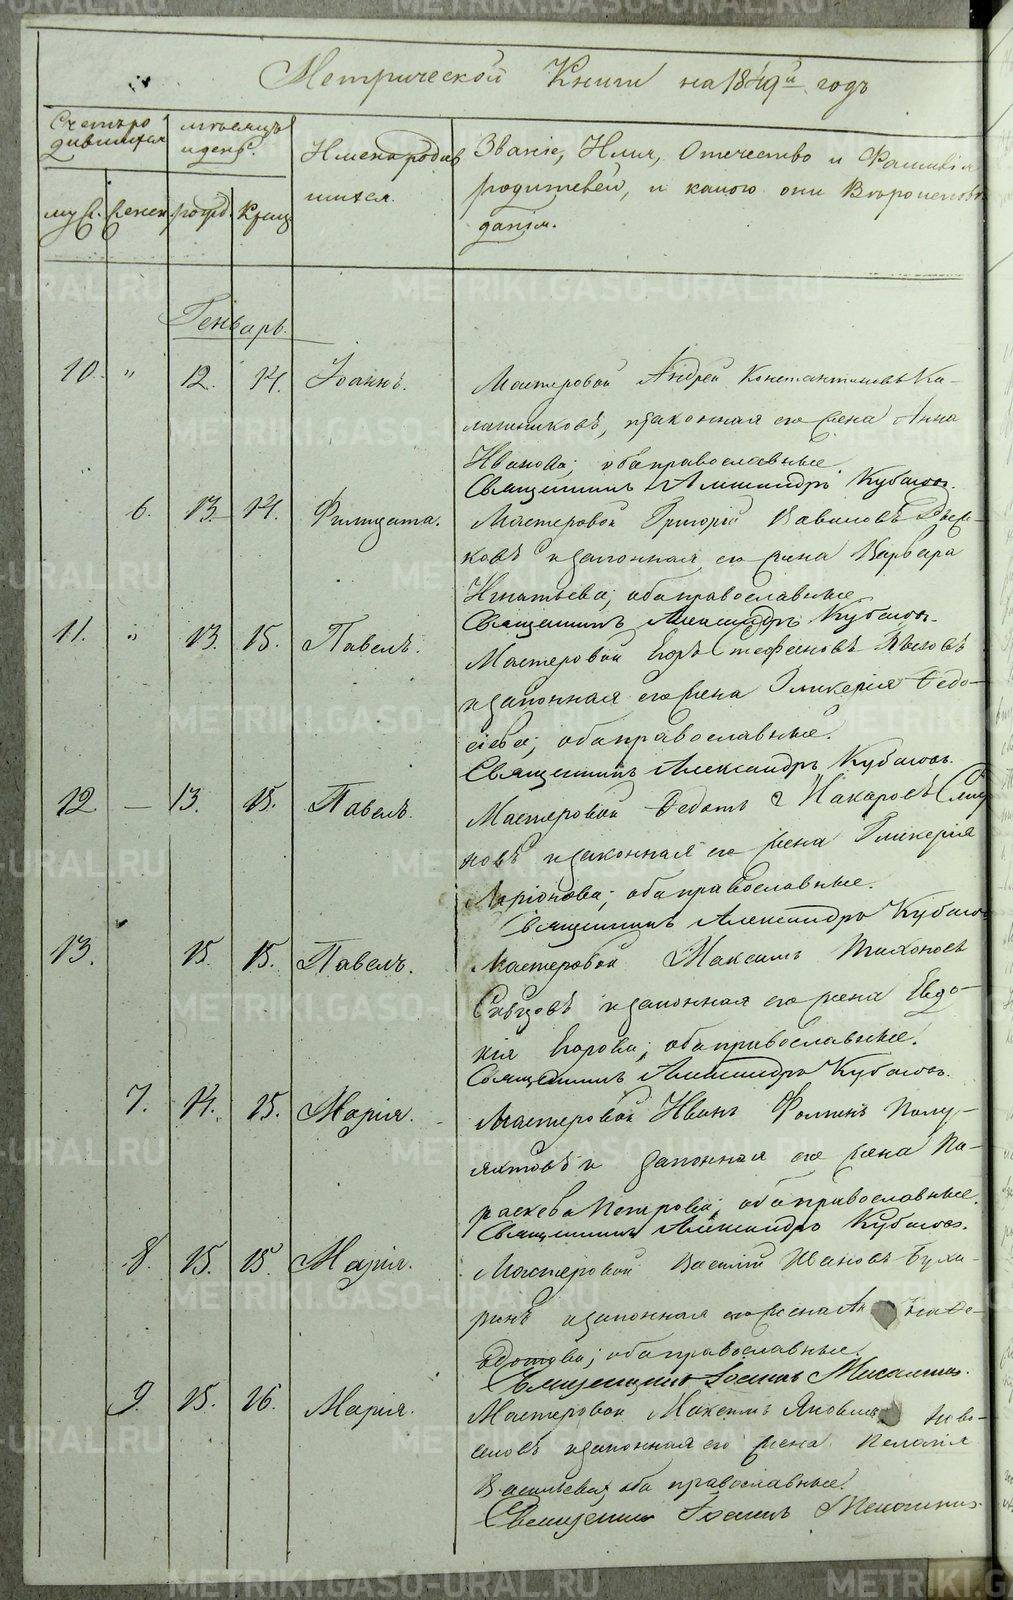 Метрической Книги на 1849й годъ
Счетъ ро
дившихся
мѣсяцъ
и день.
Имена родив
шихся.
Званіе, Имя, Отечество и Фамилія
родителей, и какого они Вѣроисповѣ
данія.
муж. женск. рожд. Крещ.
Генварь.
10. " 12. 14. Іоаннъ. Мастеровой Андрей Константиновъ Ка-
лашниковъ, и законная его жена Анна
Иванова; оба православные.
Священникъ Александръ
6. 13. 14. Фелицата. Мастеровой Григорій Вавиловъ
ковъ и законная его жена Варвара
Игнатьева; оба православные.
Священникъ Александръ
11. " 13. 15. Павелъ. Мастеровой Егоръ Стефановъ
и законная его жена Гликерія Федо-
сіева; оба православные.
Священникъ Александръ
12 — 13. 15. Павелъ. Мастеровой Федотъ Макаровъ
новъ и законная его жена Гликерія
Ларіонова; оба православные.
Священникъ Александръ
13. 15. 15. Павелъ. Мастеровой Максимъ Тихоновъ
и законная его жена Евдо-
кія Егорова; оба православные.
Священникъ Александръ
7. 14. 15. Марія. Мастеровой Иванъ Фоминъ Полу-
яхтовъ и законная его жена Па-
раскева Петрова; оба православные.
Священникъ Александръ
8. 15. 15. Марія. Мастеровой Василій Ивановъ Буха-
ринъ и законная его жена
оба православные.
Священникъ Іоаннъ
9. 15. 16. Марія. Мастеровой Максимъ Яковлевъ
и законная его жена Пелагія
Васильева; оба православные.
Священникъ Іоаннъ
METRIKI.GASO-URAL.RU